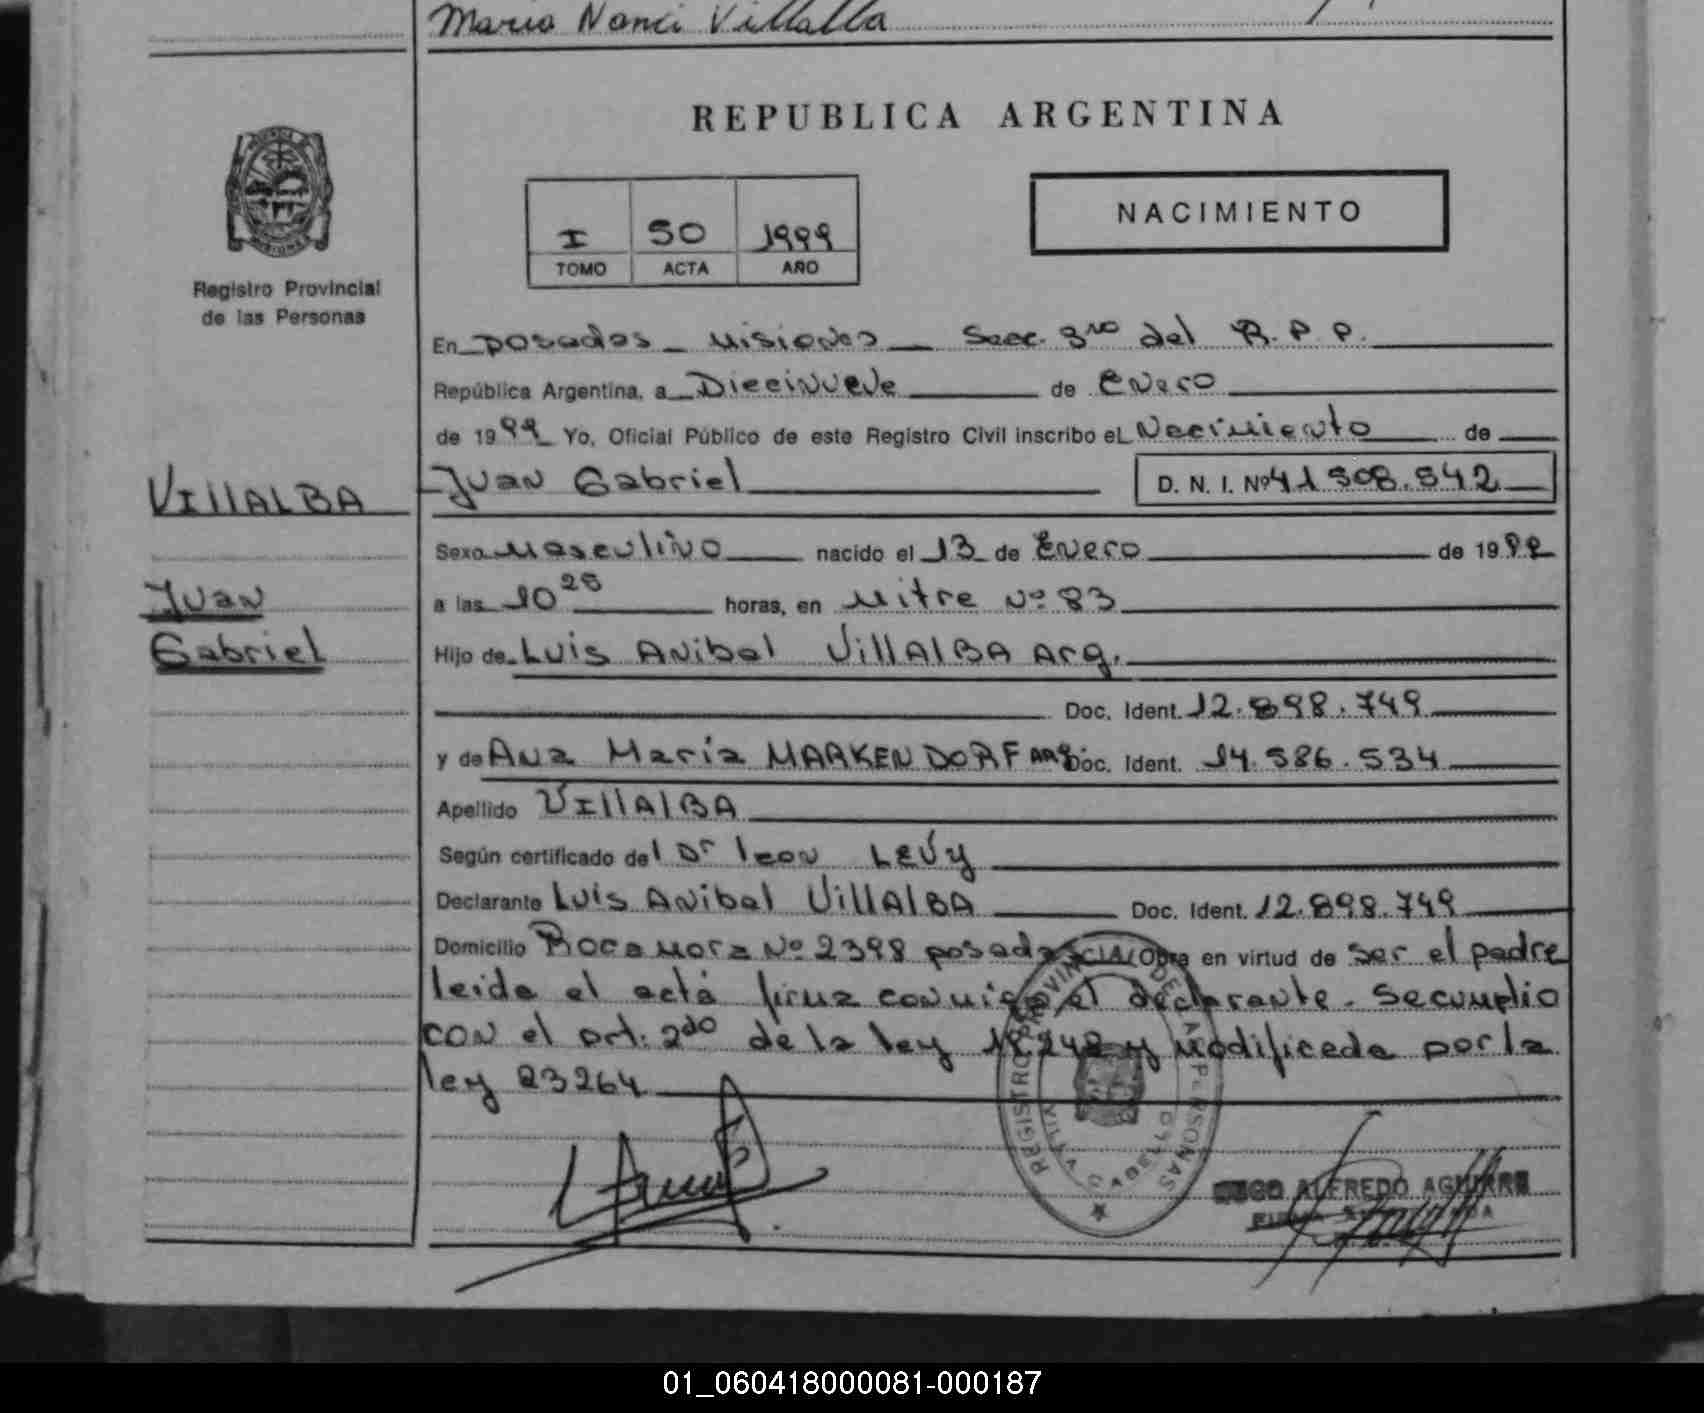 Maria Nanci Villalba
REPUBLICA ARGENTINA
NACIMIENTO
I 50 1999
TOMO ACTA AÑO
Registro Provincial
de las Personas
En Posadas - Misiones - Secc. 3ra del R.P.P.
República Argentina, a Diecinueve de Enero
de 1999 Yo, Oficial Público de este Registro Civil inscribo el Nacimiento de
VIllALBA
Juan
Gabriel
Juan Gabriel D. N. I. Nº 41 508.542
Sexo Masculino nacido el 13 de Enero de 1999
a las 10 25 horas, en Mitre Nº 83
Hijo de Luis Anibal VillAlBA Arg.
Doc. Ident. 12.898.749
y de Ana María MARKENDORF ARG Doc. Ident. 14.586.534
Apellido VIllAlBA
Según certificado del Dr leon LEVy
Declarante Luis Anibal VillAlBA Doc. Ident. 12.898.749
Domicilio Rocamora Nº 2398 posadas Obra en virtud de ser el padre
leida el acta firma conmigo el declarante. Secumplio
con el art. 2do de la ley 18.248 y modificada por la
ley 23264
REGISTRO PROVINCIAL DE LAS PERSONAS
ALFREDO AGUIRRE
01_060418000081-000187